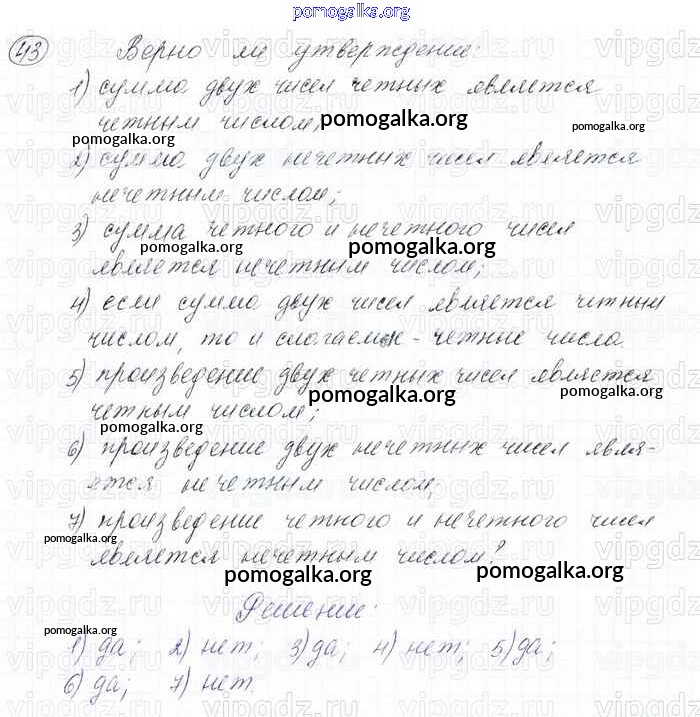 pomogalka.org
43 Верно ли утверждение:
1) сумма двух чисел четных является
четным числом;
pomogalka.org
pomogalka.org
pomogalka.org
2) сумма двух нечетных чисел является
нечетным числом;
3) сумма четного и нечетного чисел
pomogalka.org
pomogalka.org
является нечетным числом;
4) если сумма двух чисел является четным
числом, то и слагаемые - четные числа.
5) произведение двух четных чисел является
pomogalka.org
pomogalka.org
четным числом;
pomogalka.org
6) произведение двух нечетных чисел явля-
ется нечетным числом;
7) произведение четного и нечетного чисел
pomogalka.org
является нечетным числом?
pomogalka.org
pomogalka.org
Решение:
pomogalka.org
1) да; 2) нет; 3) да; 4) нет; 5) да;
6) да; 7) нет.